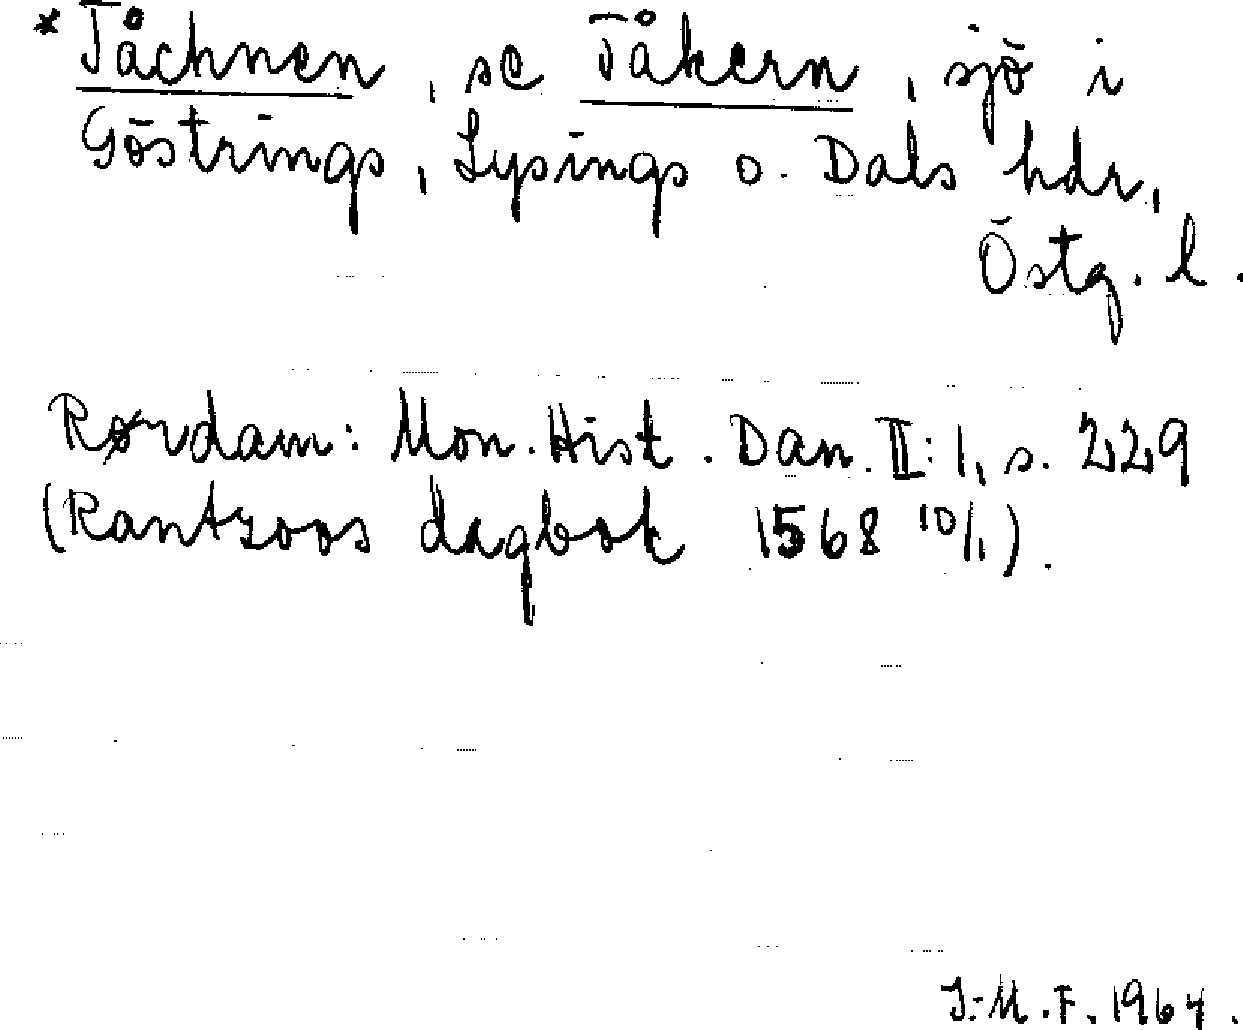 * Tåchnen, se Tåkern, sjö i
Göstrings, Lysings o. Dals hdr,
Östg. l.
Rørdam: Mon. Hist. Dan. II:1, s. 229
(Rantzoos dagbok 1568 10/1).
J.-M.F. 1964.